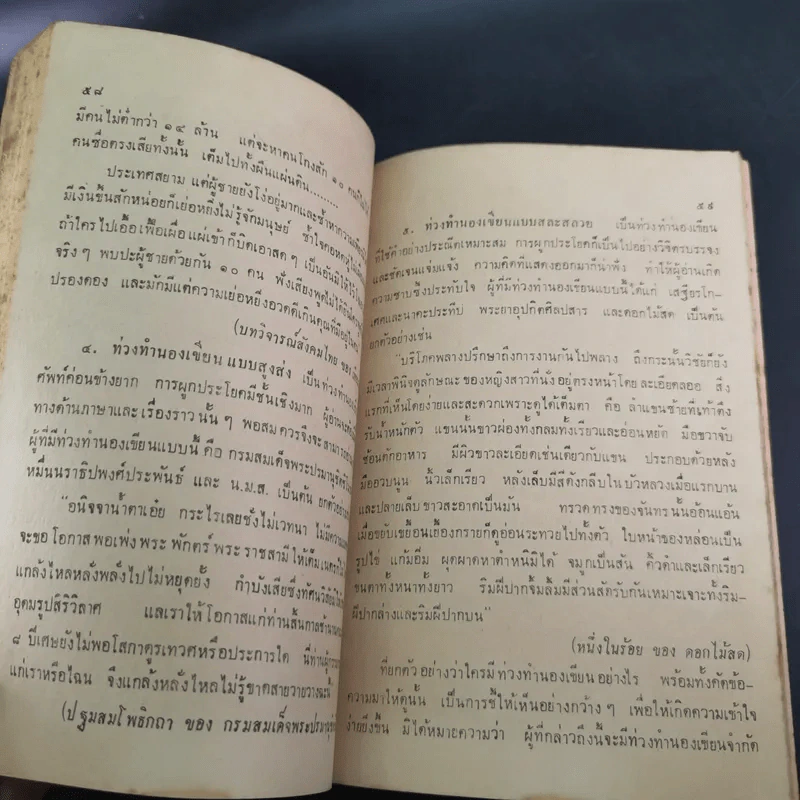 ๕๘
มีคนไม่ต่ำกว่า ๑๔ ล้าน แต่จะหาคนโกงสัก ๑๐
คนซื่อตรงเสียทั้งนั้น เต็มไปทั้งผืนแผ่นดิน........
ประเทศสยาม แต่ผู้ชายยังโง่อยู่มากและซ้ำหาความ
มีเงินขึ้นสักหน่อยก็เย่อหยิ่งไม่รู้จักมนุษย์ ช้ำใจคอหดหู่
ถ้าใครไปเอื้อเฟื้อเผื่อแผ่เข้าก็บิดเอาสด ๆ เป็นอันมิได้
จริง ๆ พบปะผู้ชายด้วยกัน ๑๐ คน ฟังเสียงพูดไม่ได้
ปรองดอง และมักมีแต่ความเย่อหยิ่งอวดดีเกินคุณที่มี
(บทวิจารณ์สังคมไทย ของ
๔. ท่วงทำนองเขียนแบบสูงส่ง เป็นท่วงทำนอง
ศัพท์ค่อนข้างยาก การผูกประโยคมีชั้นเชิงมาก ผู้อ่าน
ทางด้านภาษาและเรื่องราวนั้น ๆ พอสมควรจึงจะสามารถ
ผู้ที่มีท่วงทำนองเขียนแบบนี้คือ กรมสมเด็จพระปรมานุชิต
หมื่นนราธิปพงศ์ประพันธ์ และ น.ม.ส. เป็นต้น ยกตัวอย่าง
"อนิจจาน้ำตาเอ๋ย กระไรเลยชั่งไม่เวทนา ไม่มี
จะขอโอกาสพอเพ่งพระพักตร์พระราชสามีให้เต็ม
แกล้งไหลหลั่งพลั่งไปไม่หยุดยั้ง กำบังเสียซึ่งทัศน
อุดมรูปสิริวิลาศ แลเราให้โอกาสแก่ท่านสิ้นกาลช้านาน
๘ ปีเศษยังไม่พอโสกาดูรเทวศหรือประการใด นี่ท่าน
แก่เราหรือไฉน จึงแกล้งหลั่งไหลไม่รู้ขาดสายวายวาง
(ปฐมสมโพธิกถา ของ กรมสมเด็จพระปรมานุ
๕๙
๕. ท่วงทำนองเขียนแบบสละสลวย เป็นท่วงทำนองเขียน
ที่ใช้คำอย่างประณีตเหมาะสม การผูกประโยคก็เป็นไปอย่างวิจิตรบรรจง
และชัดเจนแจ่มแจ้ง ความคิดที่แสดงออกมาก็น่าฟัง ทำให้ผู้อ่านเกิด
ความซาบซึ้งประทับใจ ผู้ที่มีท่วงทำนองเขียนแบบนี้ได้แก่ เสฐียรโก-
เศศและนาคะประทีป พระยาอุปกิตศิลปสาร และดอกไม้สด เป็นต้น
ยกตัวอย่างเช่น
"บริโภคพลางปรึกษาถึงการงานกันไปพลาง ถึงกระนั้นวิชัยก็ยัง
มีเวลาพินิจดูลักษณะของหญิงสาวที่นั่งอยู่ตรงหน้าโดยละเอียดลออ สิ่ง
แรกที่เห็นโดยง่ายและสะดวกเพราะดูได้เต็มตา คือ ลำแขนซ้ายที่เท้าตึง
รับน้ำหนักตัว แขนนั้นขาวผ่องทั้งกลมทั้งเรียวและอ่อนหยัด มือขวาจับ
ช้อนตักอาหาร มีผิวขาวละเอียดเช่นเดียวกับแขน ประกอบด้วยหลัง
มืออวบนูน นิ้วเล็กเรียว หลังเล็บมีสีดังกลีบในบัวหลวงเมื่อแรกบาน
และปลายเล็บขาวสะอาดเป็นมัน ทรวดทรงของจันทรนั้นอ้อนแอ้น
เมื่อขยับเขยื้อนเยื้องกรายก็ดูอ่อนระทวยไปทั้งตัว ใบหน้าของหล่อนเป็น
รูปไข่ แก้มอิ่ม ผุดผาดหาตำหนิมิได้ จมูกเป็นสัน คิ้วดำและเล็กเรียว
ขนตาทั้งหนาทั้งยาว ริมฝีปากจิ้มลิ้มมีส่วนสัดรับกันเหมาะเจาะทั้งริม-
ฝีปากล่างและริมฝีปากบน"
(หนึ่งในร้อย ของ ดอกไม้สด)
ที่ยกตัวอย่างว่าใครมีท่วงทำนองเขียนอย่างไร พร้อมทั้งคัดข้อ-
ความมาให้ดูนั้น เป็นการชี้ให้เห็นอย่างกว้าง ๆ เพื่อให้เกิดความเข้าใจ
ง่ายยิ่งขึ้น มิได้หมายความว่า ผู้ที่กล่าวถึงนี้จะมีท่วงทำนองเขียนจำกัด